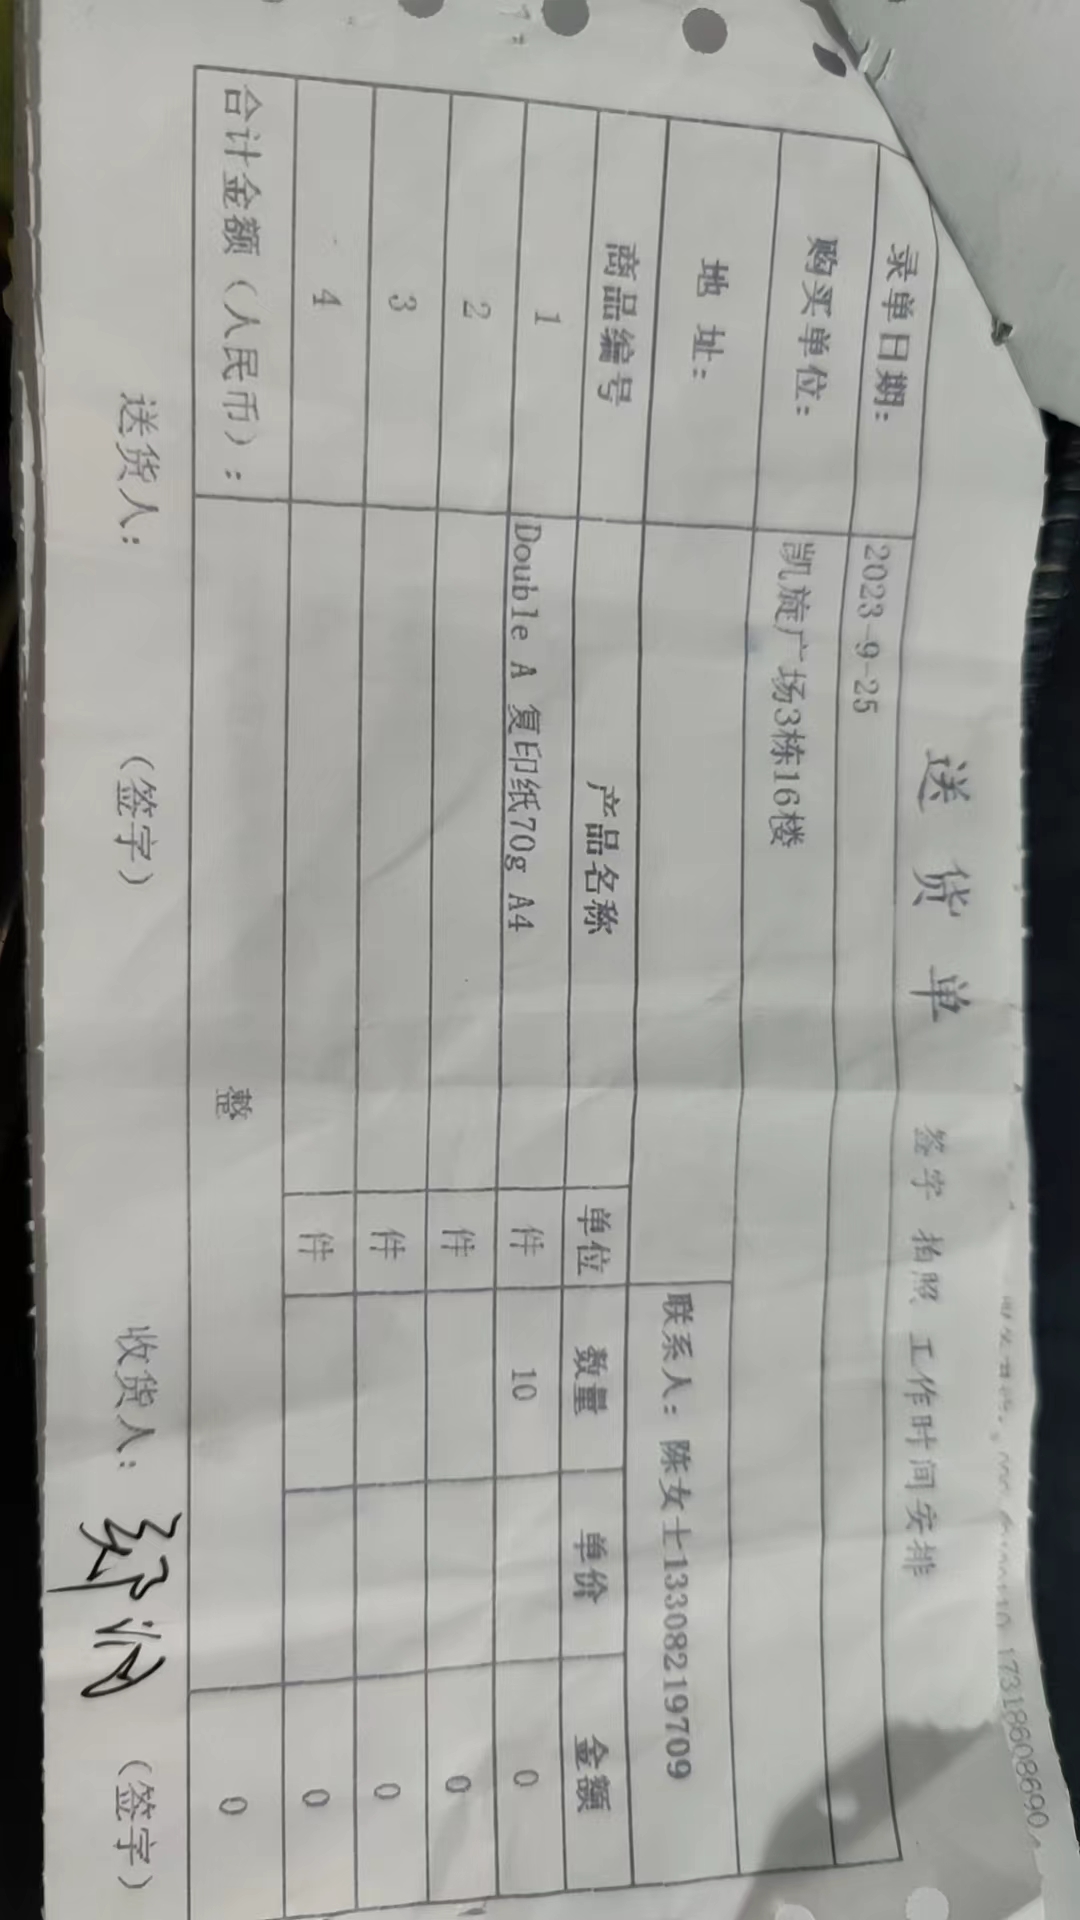 17318608690
送 货 单 签字 拍照 工作时间安排
录单日期: 2023-9-25
购买单位: 凯旋广场3栋16楼
地 址: 联系人: 陈女士13308219709
商品编号 产品名称 单位 数量 单价 金额
1 Double A 复印纸70g A4 件 10 0
2 件 0
3 件 0
4 件 0
合计金额(人民币): 整 0
送货人: (签字) 收货人: (签字)